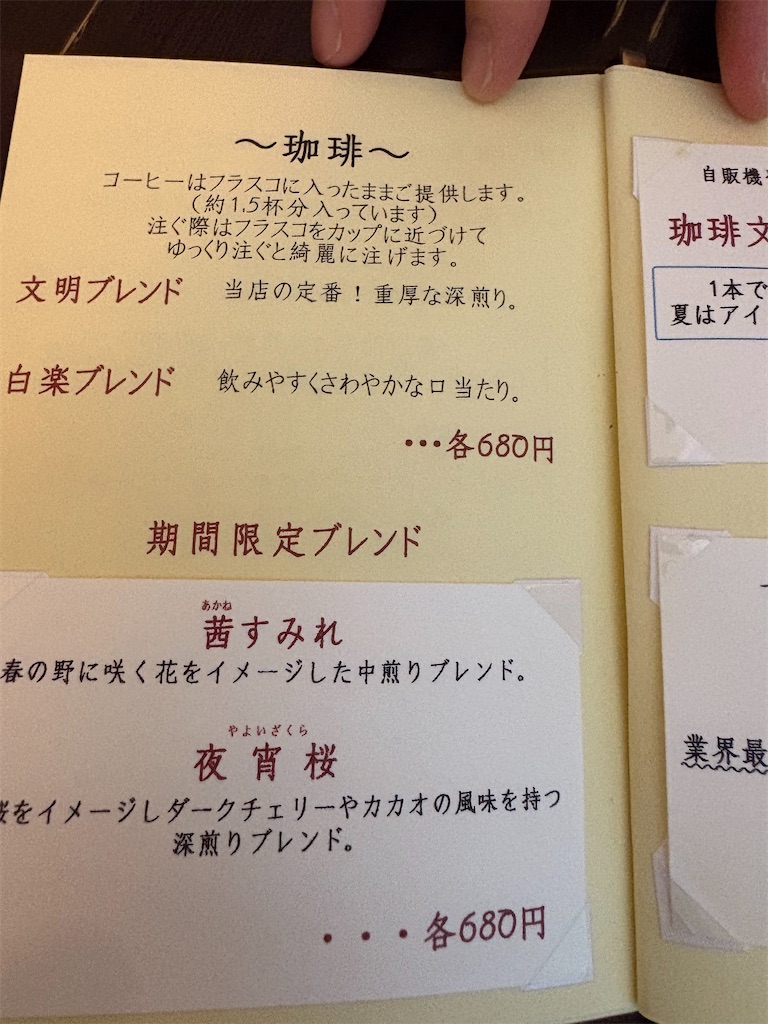 ～珈琲～
コーヒーはフラスコに入ったままご提供します。
(約1,5杯分入っています)
注ぐ際はフラスコをカップに近づけて
ゆっくり注ぐと綺麗に注げます。
文明ブレンド 当店の定番！重厚な深煎り。
白楽ブレンド 飲みやすくさわやかな口当たり。
・・・各680円
期間限定ブレンド
あかね
茜すみれ
春の野に咲く花をイメージした中煎りブレンド。
やよいざくら
夜宵桜
桜をイメージしダークチェリーやカカオの風味を持つ
深煎りブレンド。
・・・各680円
自販機
珈琲文
1本で
夏はアイ
業界最